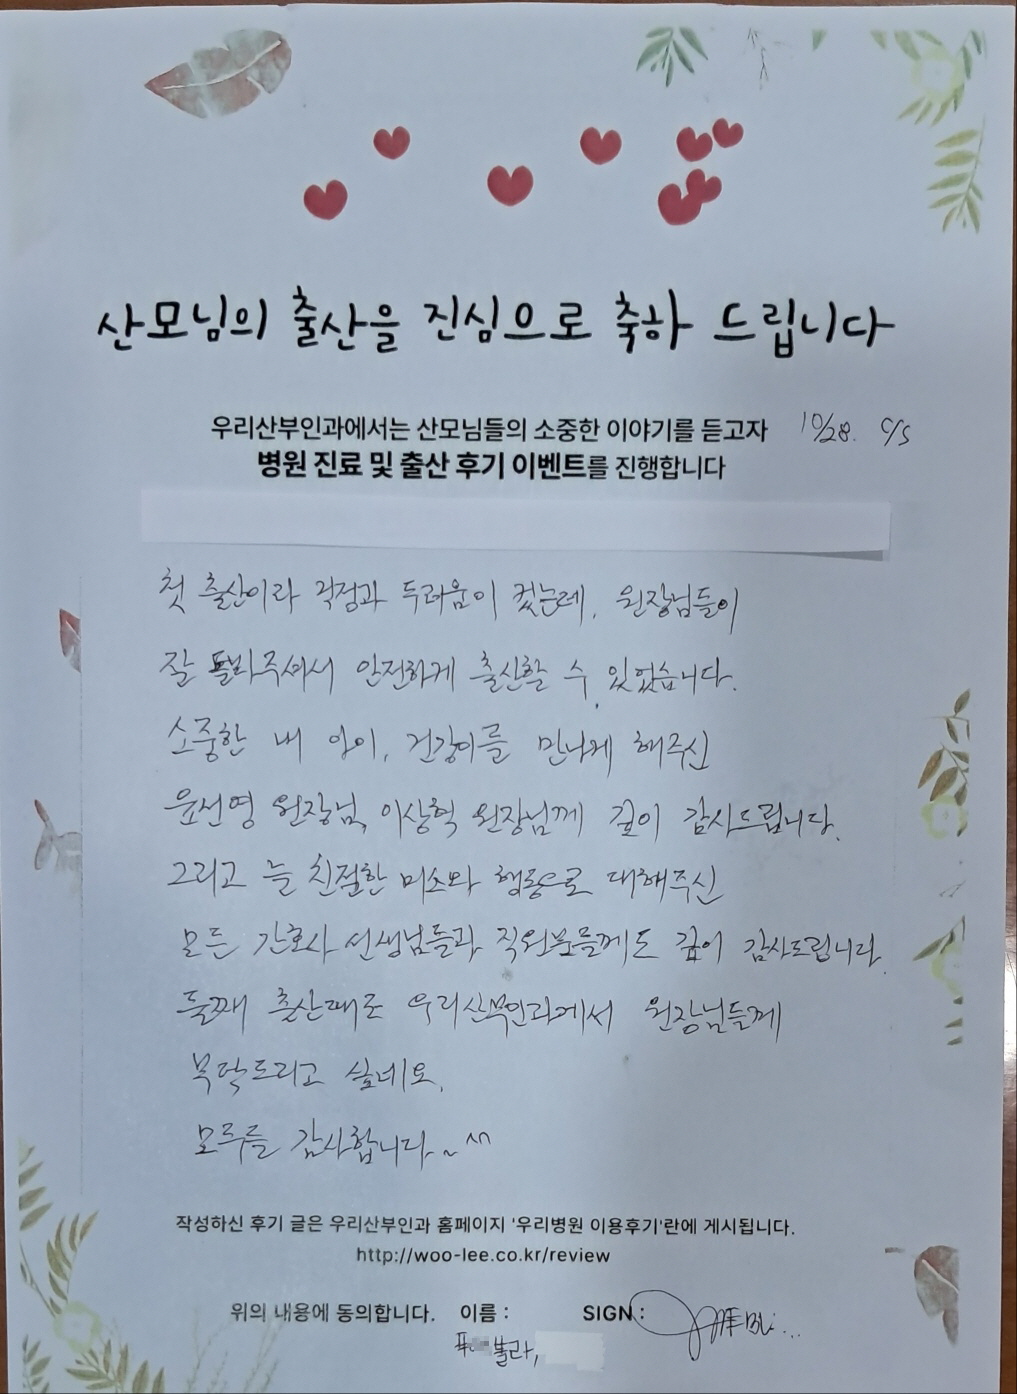 산모님의 출산을 진심으로 축하 드립니다
우리산부인과에서는 산모님들의 소중한 이야기를 듣고자 10/28. c/s
병원 진료 및 출산 후기 이벤트를 진행합니다
첫 출산이라 걱정과 두려움이 컸는데, 원장님들이
잘 돌봐주셔서 안전하게 출산할 수 있었습니다.
소중한 내 아이, 건강이를 만나게 해주신
윤선영 원장님, 이상혁 원장님께 깊이 감사드립니다.
그리고 늘 친절한 미소와 행동으로 대해주신
모든 간호사 선생님들과 직원분들께도 깊이 감사드립니다.
둘째 출산때도 우리산부인과에서 원장님들께
부탁드리고 싶네요.
모두들 감사합니다~^^
작성하신 후기 글은 우리산부인과 홈페이지 '우리병원 이용후기'란에 게시됩니다.
http://woo-lee.co.kr/review
위의 내용에 동의합니다. 이름 : SIGN :